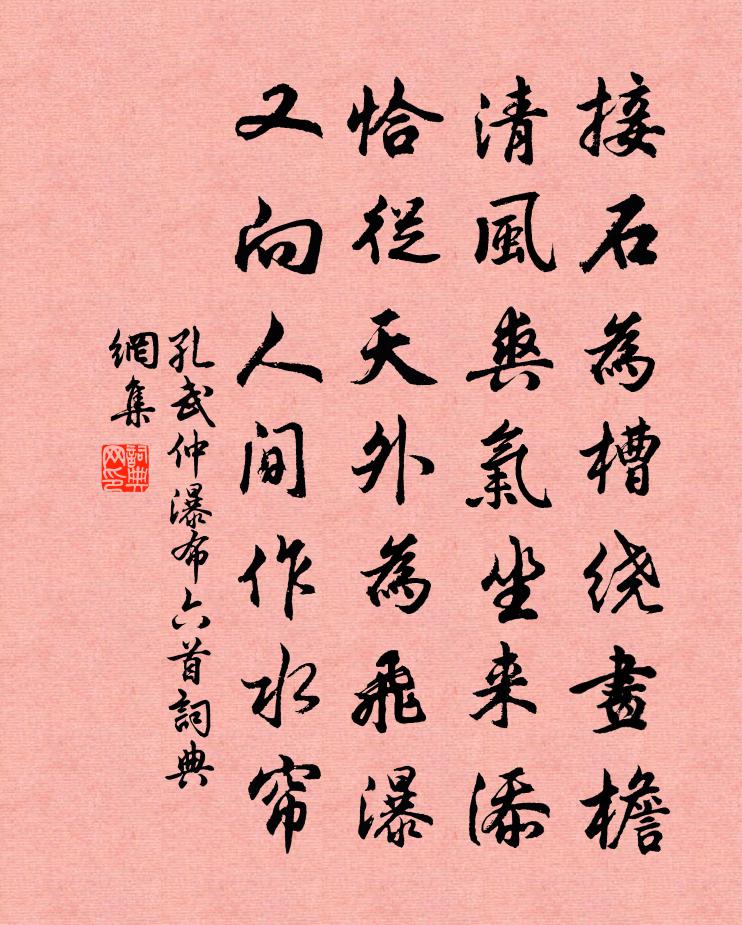 接石為槽绕畫檐
清風爽氣坐来添
恰從天外為飛瀑
又向人间作水帘
孔武仲瀑布六首詞典
網集
詞典
网印